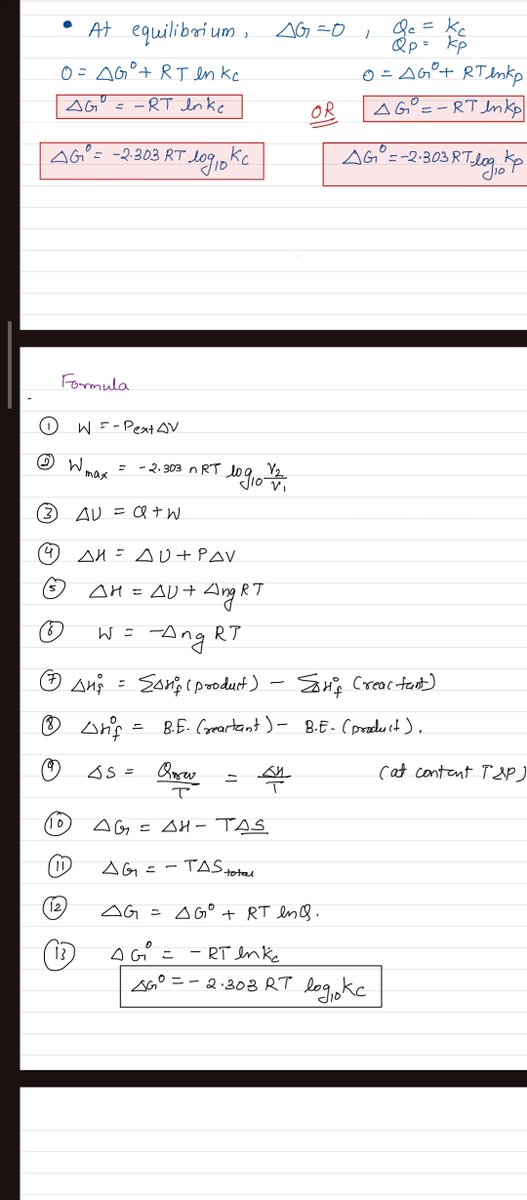 • At equilibrium, ΔG = 0, Qc = Kc
Qp = Kp
0 = ΔG° + RT ln Kc
0 = ΔG° + RT ln Kp
ΔG° = -RT ln Kc
OR
ΔG° = -RT ln Kp
ΔG° = -2.303 RT log₁₀ Kc
ΔG° = -2.303 RT log₁₀ Kp
Formula
① W = -Pext ΔV
② Wmax = -2.303 nRT log₁₀ V₂/V₁
③ ΔU = Q + W
④ ΔH = ΔU + PΔV
⑤ ΔH = ΔU + Δng RT
⑥ W = -Δng RT
⑦ ΔH°f = ΣΔH°f (product) - ΣΔH°f (reactant)
⑧ ΔH°f = B.E. (reactant) - B.E. (product).
⑨ ΔS = Qrev/T = ΔH/T (at content T & P)
⑩ ΔG = ΔH - TΔS
⑪ ΔG = -TΔS total
⑫ ΔG = ΔG° + RT ln Q.
⑬ ΔG° = -RT ln Kc
ΔG° = -2.303 RT log₁₀ Kc